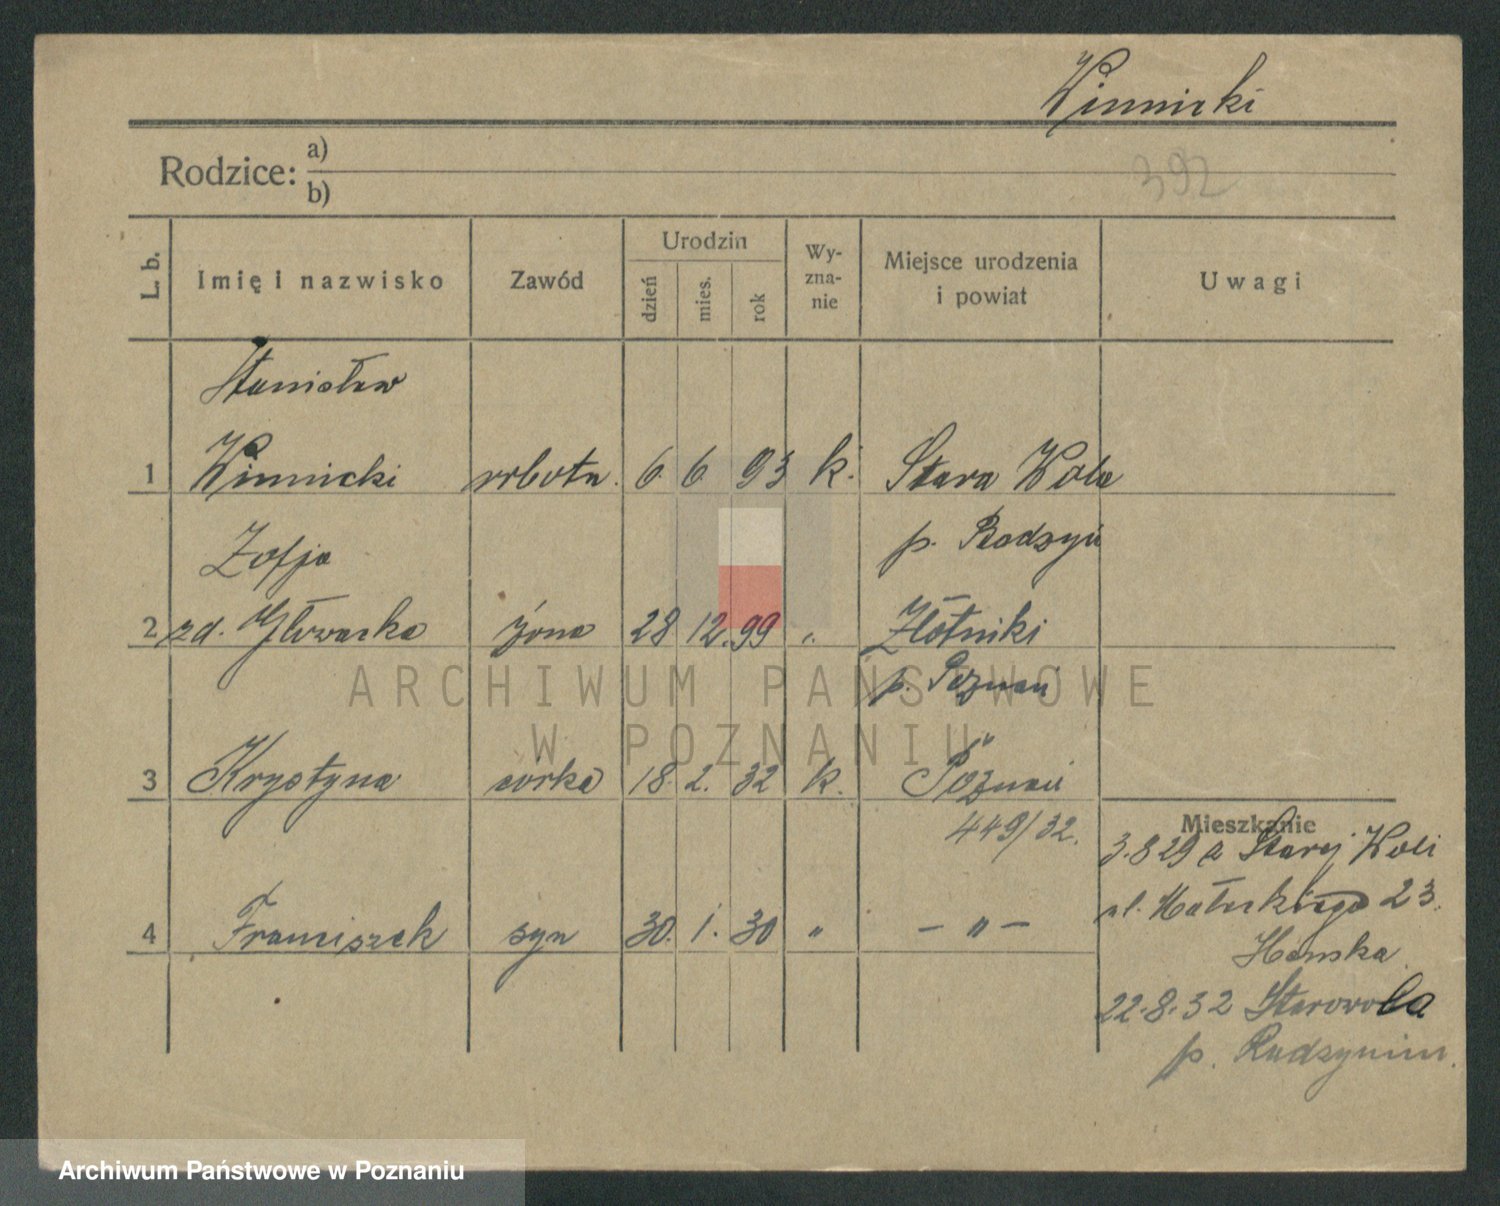 Winnicki
Rodzice: a)
b)
392
L. b. Imię i nazwisko Zawód Urodzin dzień mies. rok Wy-zna-nie Miejsce urodzenia i powiat Uwagi
Stanisław
1 Winnicki robotn. 6. 6. 93 k. Stara Wola
Zofja p. Radzyń
2 zd. Głowacka żona 28 12. 99 " Złotniki
p. Poznań
3 Krystyna córka 18. 2. 32 k. Poznań
449/32.
Mieszkanie
3.8 29 z Starej Woli
ul. 23.
4 Franciszek syn 30. 1. 30 " — " —
22.8.32 Starowola
p. Radzymin.
ARCHIWUM PAŃSTWOWE
W POZNANIU
Archiwum Państwowe w Poznaniu